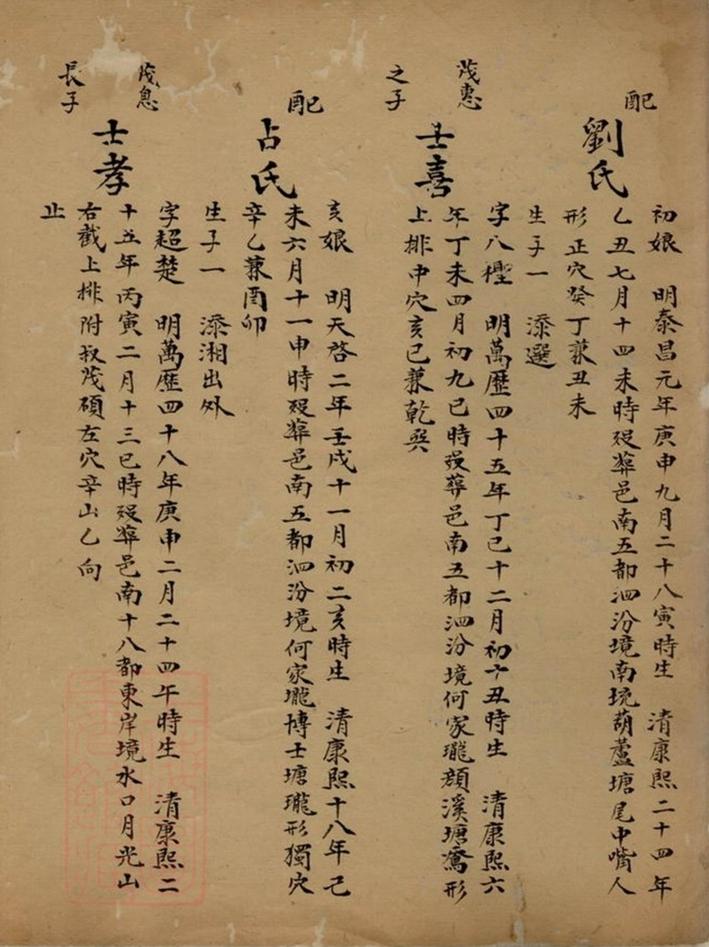 配
劉氏
初娘 明泰昌元年庚申九月二十八寅時生 清康熙二十四年
乙丑七月十四未時歿葬邑南五都泗汾境南境葫蘆塘尾中嘴人
形正穴癸丁兼丑未
生子一 添選
茂惠
之子
士喜
字八樫 明萬歷四十五年丁巳十二月初十丑時生 清康熙六
年丁未四月初九巳時歿葬邑南五都泗汾境何家壠顔溪塘形
上排中穴亥巳兼乾巽
配
占氏
亥娘 明天啓二年壬戌十一月初二亥時生 清康熙十八年己
未六月十一申時歿葬邑南五都泗汾境何家壠博士塘壠形獨穴
辛乙兼酉卯
生子一 添湘出外
茂息
長子
士孝
字超楚 明萬歷四十八年庚申二月二十四午時生 清康熙二
十五年丙寅二月十三巳時歿葬邑南十八都東岸境水口月光山
右截上排附叔茂碩左穴辛山乙向
止